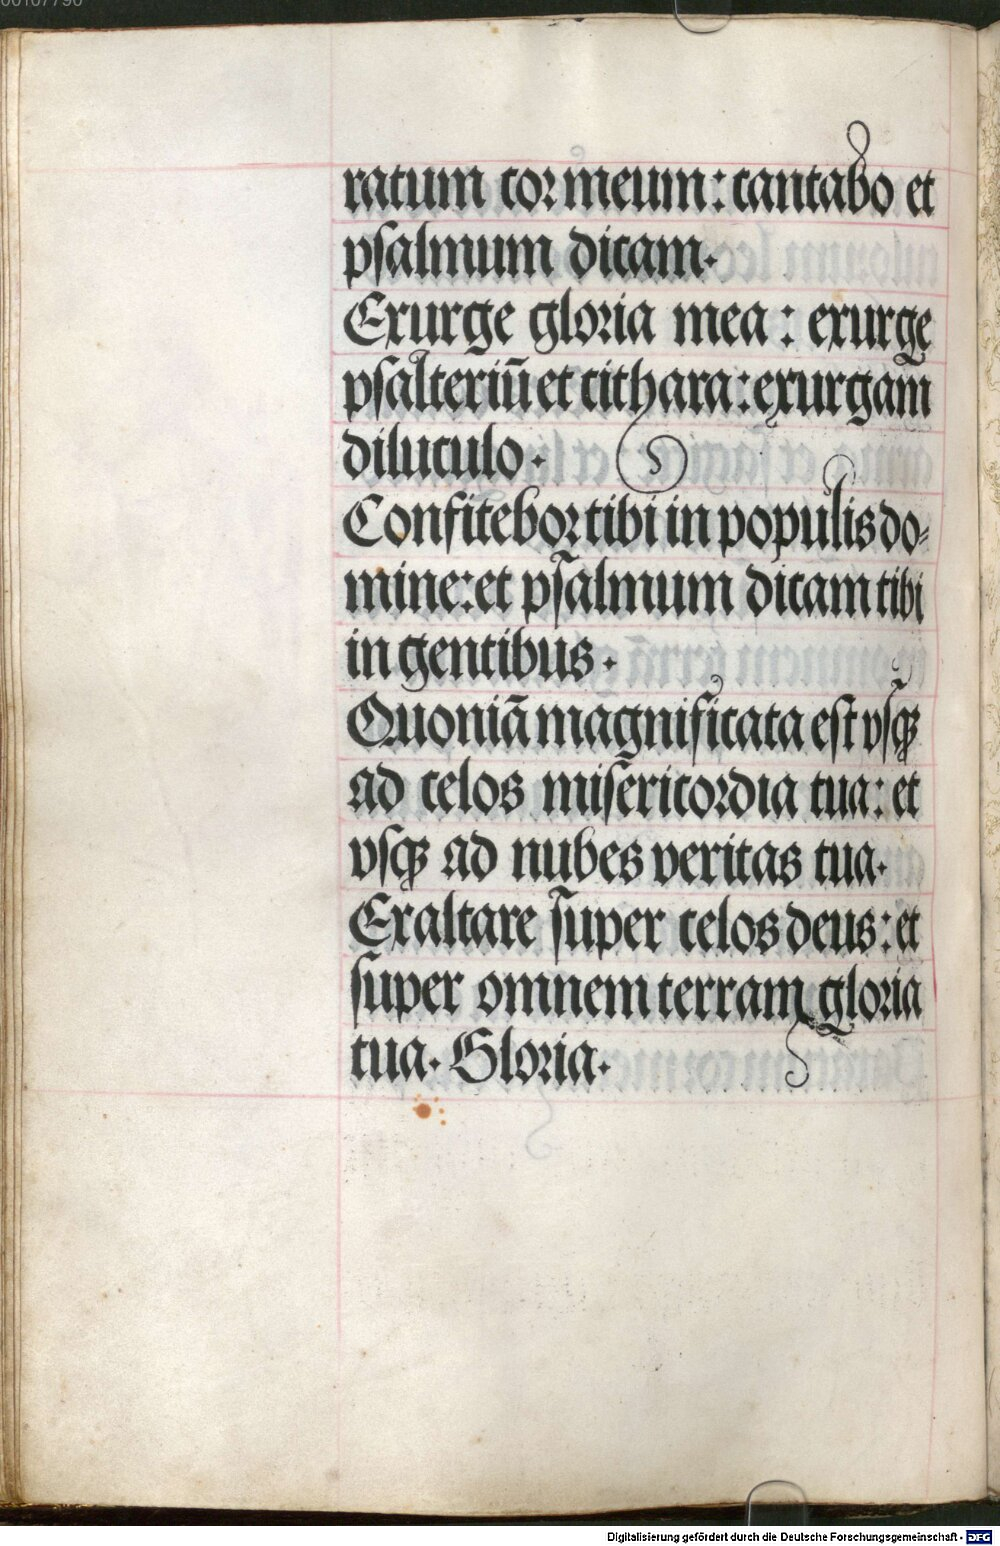 00107790
ratum cor meum: cantabo et
psalmum dicam.
Exurge gloria mea: exurge
psalteriū et cithara: exurgam
diluculo.
Confitebor tibi in populis do-
mine: et psalmum dicam tibi
in gentibus.
Quoniā magnificata est vsqꝫ
ad celos misericordia tua: et
vsqꝫ ad nubes veritas tua.
Exaltare super celos deus: et
super omnem terram gloria
tua. Gloria.
Digitalisierung gefördert durch die Deutsche Forschungsgemeinschaft - DFG